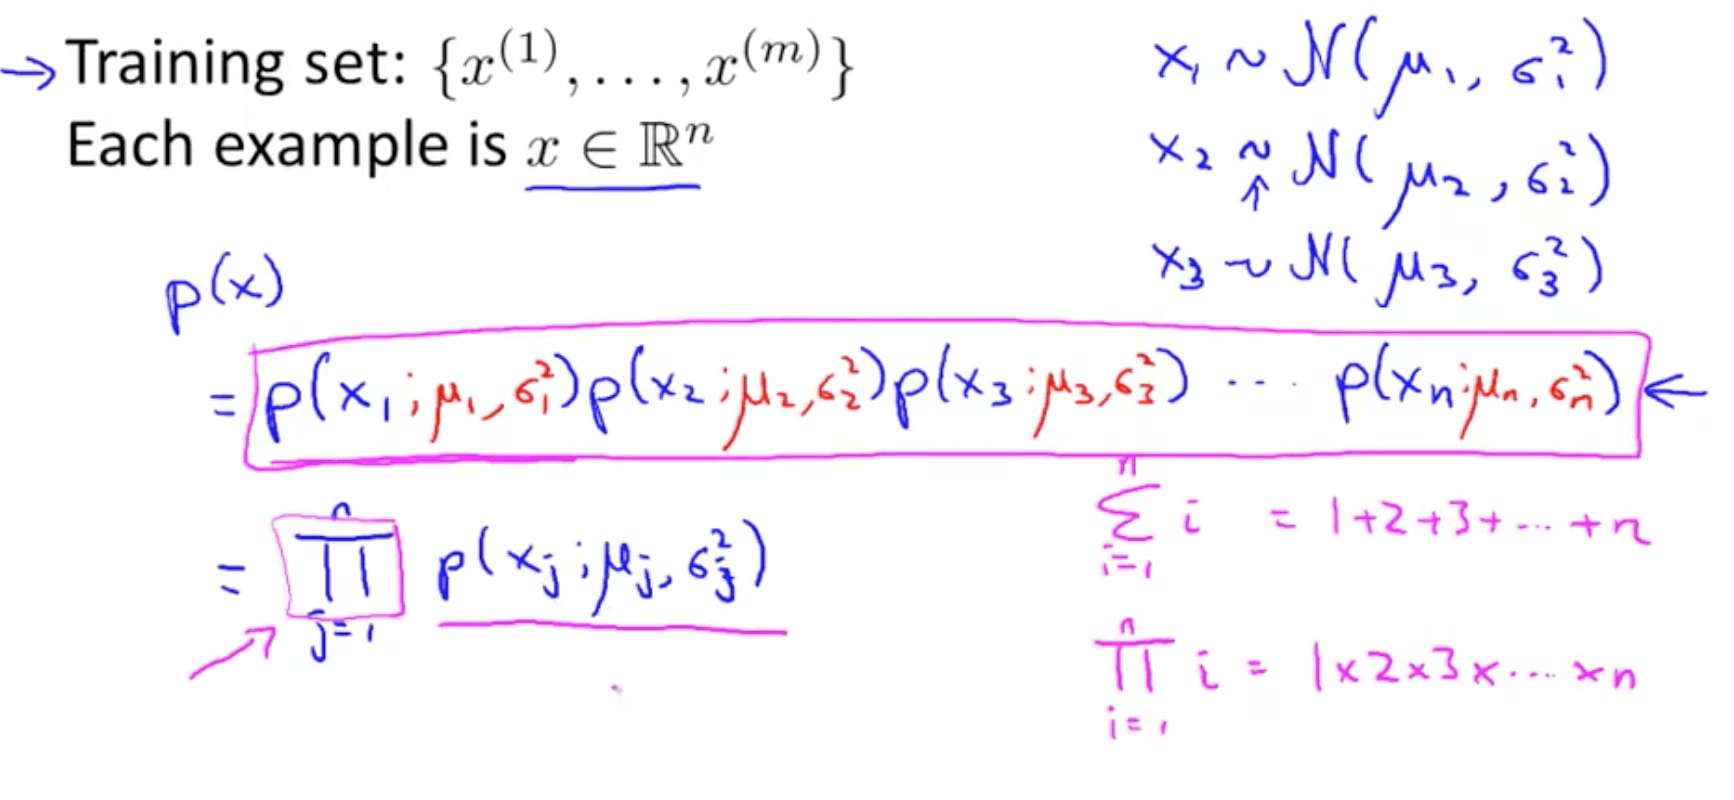 → Training set: {x⁽¹⁾, . . . , x⁽ᵐ⁾}
Each example is x ∈ ℝⁿ
x₁ ~ N(μ₁, σ₁²)
x₂ ~ N(μ₂, σ₂²)
↑
x₃ ~ N(μ₃, σ₃²)
p(x)
= p(x₁; μ₁, σ₁²) p(x₂; μ₂, σ₂²) p(x₃; μ₃, σ₃²) ··· p(xₙ; μₙ, σₙ²) ←
= ∏ⱼ₌₁ⁿ p(xⱼ; μⱼ, σⱼ²)
∑ᵢ₌₁ⁿ i = 1+2+3+···+n
∏ᵢ₌₁ⁿ i = 1×2×3×····×n